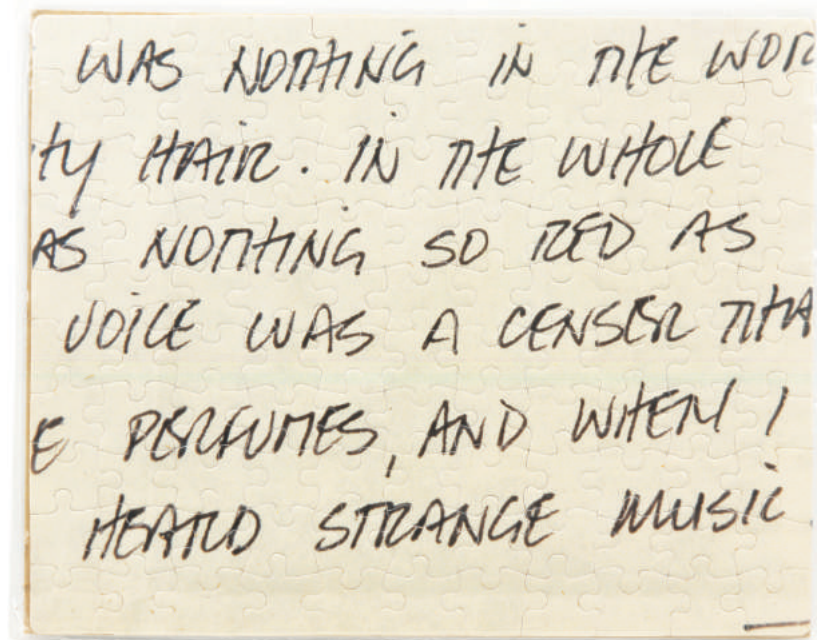 WAS NOTHING IN THE WOR
TY HAIR. IN THE WHOLE
AS NOTHING SO RED AS
VOICE WAS A CENSER THA
E PERFUMES, AND WHEN I
HEARD STRANGE MUSIC.